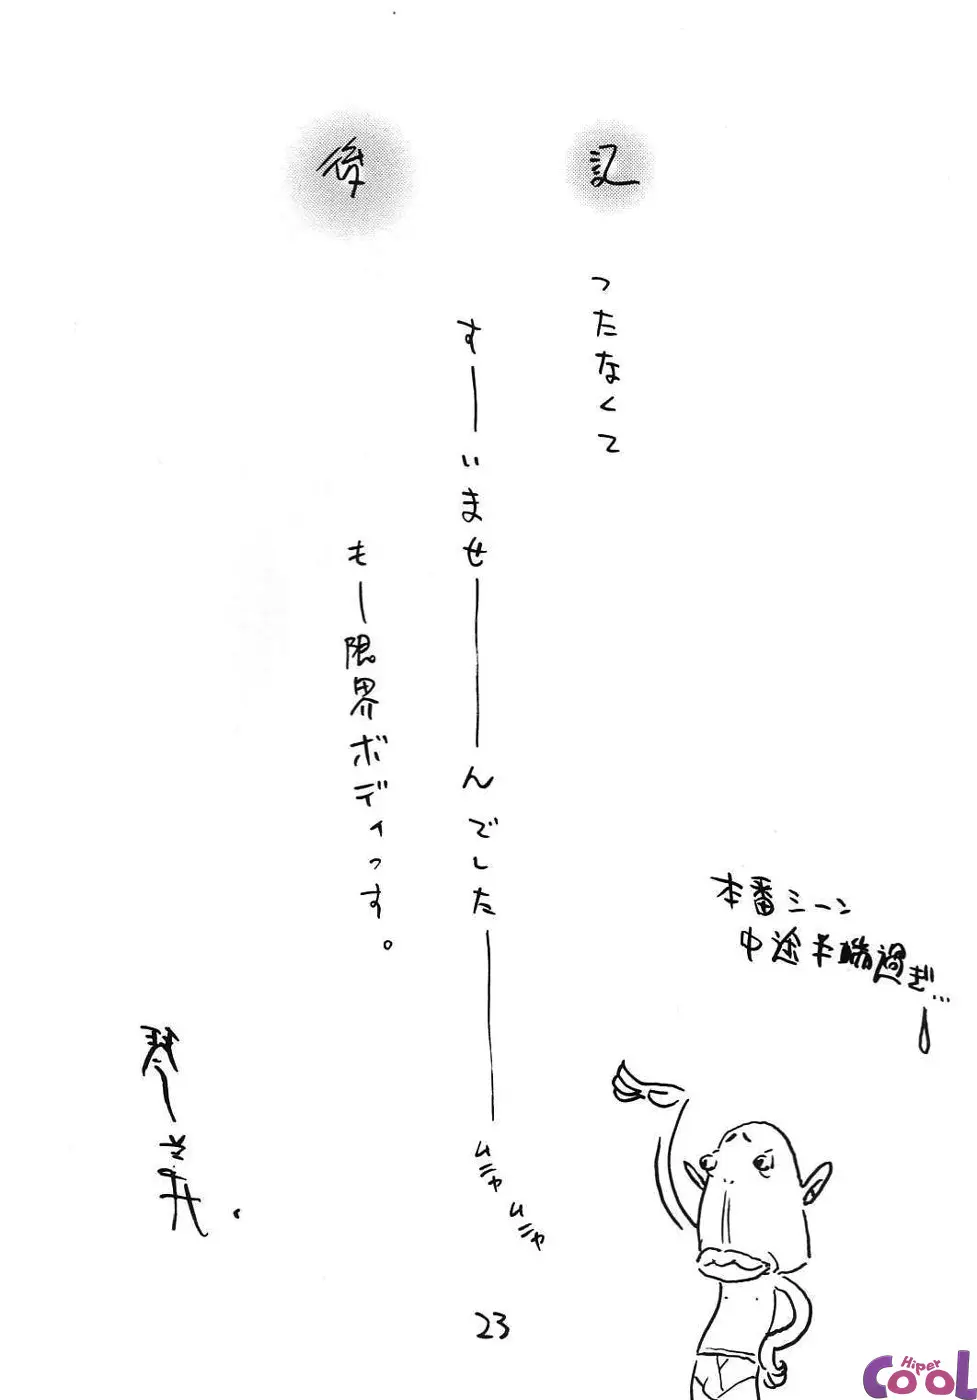 後記
つたなくて
すーいませーんでしたー
ムニャ
ムニャ
もー限界ボディっす。
本番シーン
中途半端過ぎ…
23
Hiper
COOL